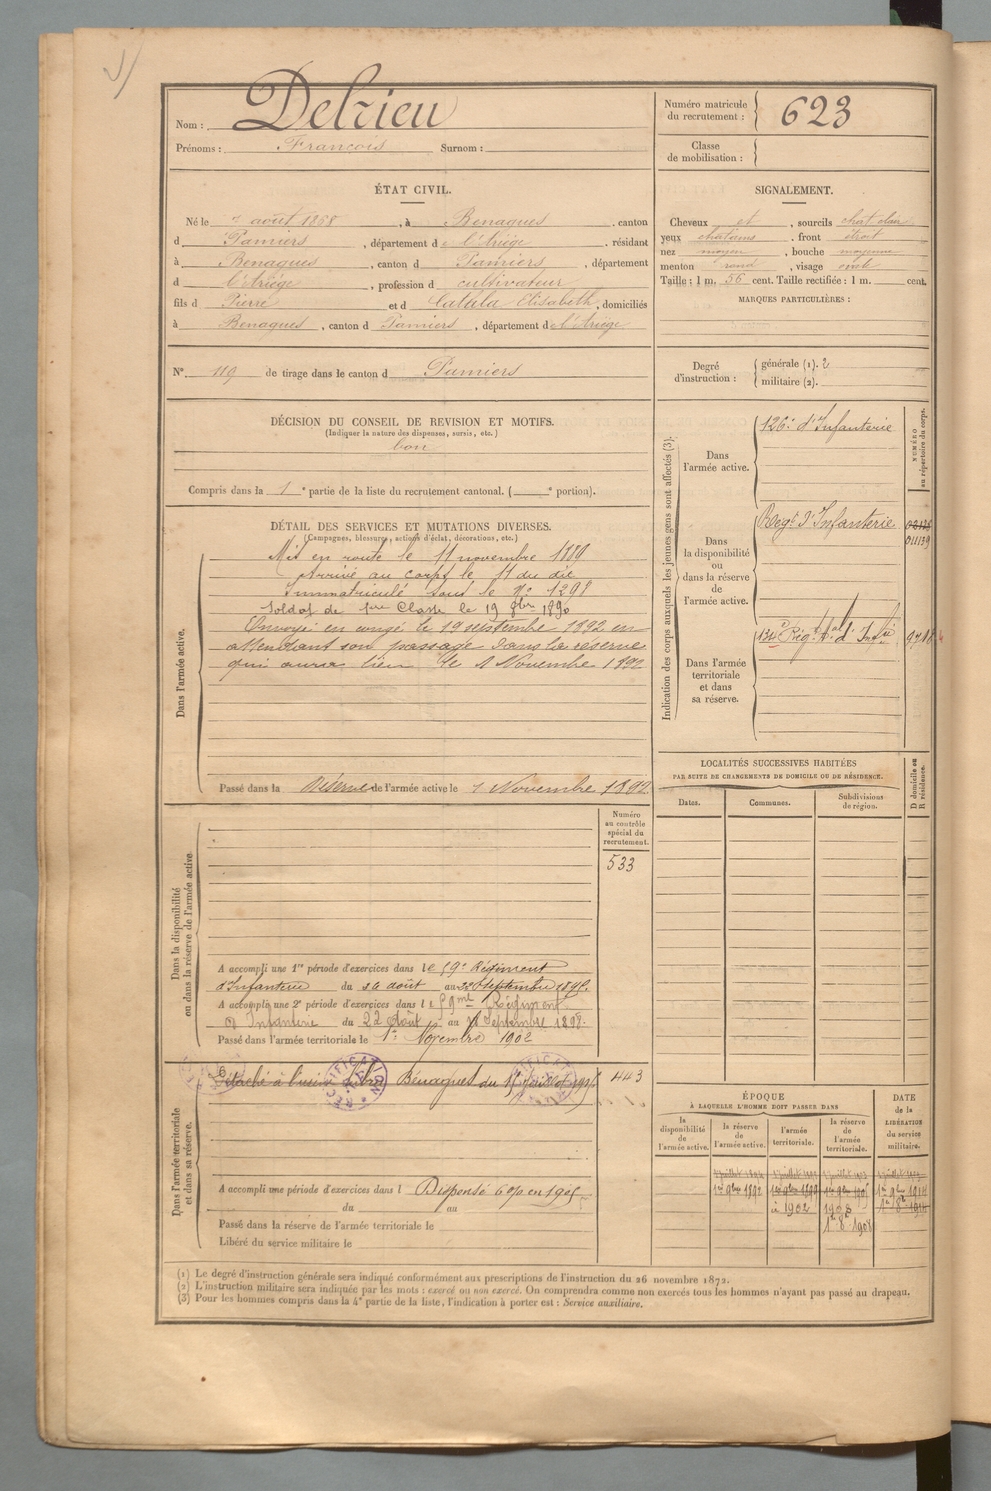 Nom : Delrieu
Prénoms : François Surnom :
Numéro matricule du recrutement : 623
Classe de mobilisation :
ÉTAT CIVIL.
Né le août 1868, à Benagues, canton
d Pamiers, département de l'Ariège, résidant
à Benagues, canton d Pamiers, département
d l'Ariège, profession d cultivateur
fils d Pierre et d Catala Elisabeth, domiciliés
à Benagues, canton d Pamiers, département de l'Ariège
N° 119 de tirage dans le canton d Pamiers
SIGNALEMENT.
Cheveux et, sourcils chat clair
yeux chatains, front étroit
nez moyen, bouche moyenne
menton rond, visage ovale
Taille : 1 m. 56 cent. Taille rectifiée : 1 m. cent.
MARQUES PARTICULIÈRES :
Degré d'instruction : générale (1). 2
militaire (2).
DÉCISION DU CONSEIL DE REVISION ET MOTIFS.
(Indiquer la nature des dispenses, sursis, etc.)
bon
Compris dans la 1e partie de la liste du recrutement cantonal. ( e portion).
DÉTAIL DES SERVICES ET MUTATIONS DIVERSES.
(Campagnes, blessures, actions d'éclat, décorations, etc.)
Dans l'armée active.
Mis en route le 11 novembre 1889
Arrivé au corps le 11 du dit
Immatriculé sous le N° 1298
Soldat de 1ère Classe le 19 9bre 1890
Envoyé en congé le 19 septembre 1892 en
attendant son passage dans la réserve
qui aura lieu le 1 Novembre 1892
Passé dans la Réserve de l'armée active le 1 Novembre 1892
Indication des corps auxquels les jeunes gens sont affectés (3).
NUMÉRO au répertoire du corps.
Dans l'armée active.
126e d'Infanterie
Dans la disponibilité ou dans la réserve de l'armée active.
Regt d'Infanterie
011139
Dans l'armée territoriale et dans sa réserve.
134e Régt tal d'Infie
LOCALITÉS SUCCESSIVES HABITÉES
PAR SUITE DE CHANGEMENTS DE DOMICILE OU DE RÉSIDENCE.
D domicile ou R résidence.
Dates. Communes. Subdivisions de région.
Dans la disponibilité ou dans la réserve de l'armée active
Numéro au contrôle spécial du recrutement.
533
A accompli une 1re période d'exercices dans le 59e Régiment
d'Infanterie du août au Septembre 1895.
A accompli une 2e période d'exercices dans le 59me Régiment
d'Infanterie du 22 Août au Septembre 1898.
Passé dans l'armée territoriale le 1er Novembre 1902
Dans l'armée territoriale et dans sa réserve.
Détaché à l'usine de Bénagues du
RECTIFICATION
443
A accompli une période d'exercices dans l Dispensé en 1905
du au
Passé dans la réserve de l'armée territoriale le
Libéré du service militaire le
ÉPOQUE
À LAQUELLE L'HOMME DOIT PASSER DANS
la disponibilité de l'armée active.
la réserve de l'armée active.
l'armée territoriale.
la réserve de l'armée territoriale.
DATE de la LIBÉRATION du service militaire.
1er 9bre 1892
1902
1908
(1) Le degré d'instruction générale sera indiqué conformément aux prescriptions de l'instruction du 26 novembre 1872.
(2) L'instruction militaire sera indiquée par les mots : exercé ou non exercé. On comprendra comme non exercés tous les hommes n'ayant pas passé au drapeau.
(3) Pour les hommes compris dans la 4e partie de la liste, l'indication à porter est : Service auxiliaire.